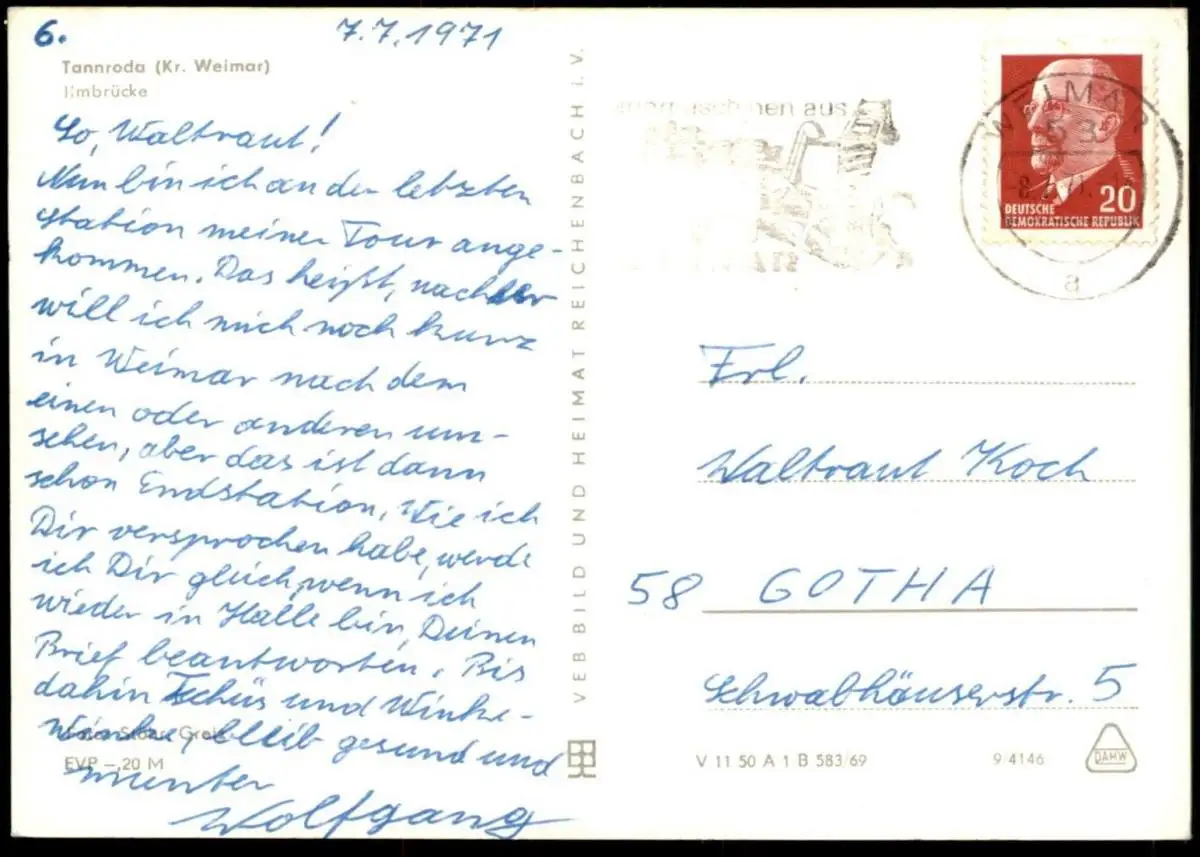 6.
7.7.1971
Tannroda (Kr. Weimar)
Ilmbrücke
So, Waltraut!
Nun bin ich an der letzten
Station meiner Tour ange-
kommen. Das heißt, nachher
will ich mich noch kurz
in Weimar nach dem
einen oder anderen um-
sehen, aber das ist dann
schon Endstation. Wie ich
Dir versprochen habe, werde
ich Dir gleich, wenn ich
wieder in Halle bin, Deinen
Brief beantworten. Bis
dahin Tschüs und Winke-
Winke, bleib gesund und
munter
Wolfgang
EVP –,20 M
VEB BILD UND HEIMAT REICHENBACH i. V.
aus
WEIMAR
53
a
20
DEUTSCHE
DEMOKRATISCHE REPUBLIK
Frl.
Waltraut Koch
58 GOTHA
Schwabhäuserstr. 5
V 11 50 A 1 B 583/69
9/4146
DAHW